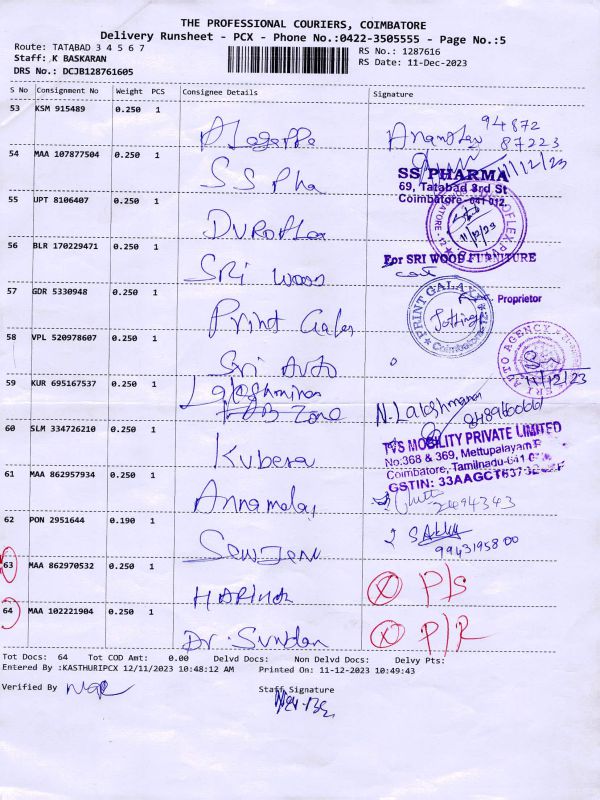 THE PROFESSIONAL COURIERS, COIMBATORE
Delivery Runsheet - PCX - Phone No.:0422-3505555 - Page No.:5
Route: TATABAD 3 4 5 6 7
RS No.: 1287616
Staff: K BASKARAN
RS Date: 11-Dec-2023
DRS No.: DCJB128761605
S No Consignment No Weight PCS Consignee Details Signature
53 KSM 915489 0.250 1
94872
87223
54 MAA 107877504 0.250 1 SS Pha
11/12/23
SS PHARMA
69, Tatabad 3rd St
Coimbatore-641 012.
55 UPT 8106407 0.250 1 Duroflex
11/12/23
56 BLR 170229471 0.250 1 SRI WOOD
For SRI WOOD FURNITURE
Proprietor
57 GDR 5330948 0.250 1 Print Galax
PRINT GALAXY
Coimbatore
58 VPL 520978607 0.250 1 Sri Auto
SRI AUTO AGENCY
11/12/23
59 KUR 695167537 0.250 1 Lakshminas
Zone
N. Lakshmanan
60 SLM 334726210 0.250 1 Kubera
TVS MOBILITY PRIVATE LIMITED
No.368 & 369, Mettupalayam R
Coimbatore, Tamilnadu-641 0
61 MAA 862957934 0.250 1 Annamalai
2494343
62 PON 2951644 0.190 1
9943195800
63 MAA 862970532 0.250 1
P/S
64 MAA 102221904 0.250 1 Dr. Sundar
P/R
Tot Docs: 64 Tot COD Amt: 0.00 Delvd Docs: Non Delvd Docs: Delvy Pts:
Entered By :KASTHURIPCX 12/11/2023 10:48:12 AM Printed On: 11-12-2023 10:49:43
Verified By
Staff Signature